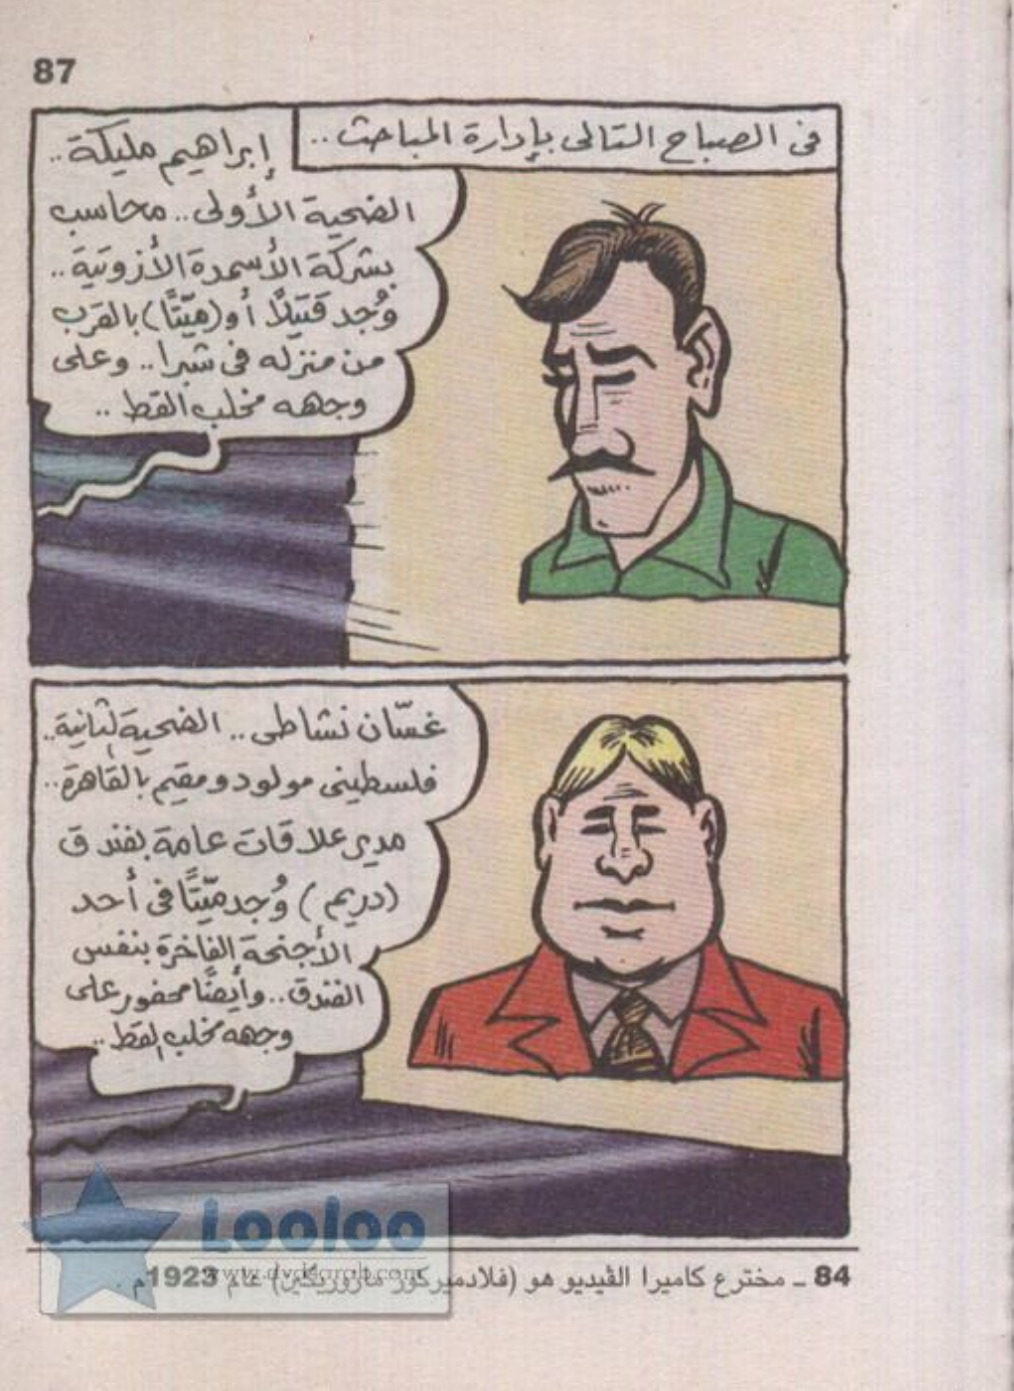 87
فى الصباح التالى بإدارة المباحث..
إبراهيم مليكة..
الضحية الأولى.. محاسب
بشركة الأسمدة الأزوتية..
وُجد قتيلًا أو (ميّتًا) بالقرب
من منزله فى شبرا.. وعلى
وجهه مخلب القط..
غسّان نشاطى.. الضحية الثانية..
فلسطينى مولود ومقيم بالقاهرة..
مدير علاقات عامة بفندق
(دريم) وُجد ميّتًا فى أحد
الأجنحة الفاخرة بنفس
الفندق.. وأيضًا محفور على
وجهه مخلب القط..
84 ـ مخترع كاميرا الڤيديو هو (فلادميركوز مازوريكين) عام 1923م.
Looloo